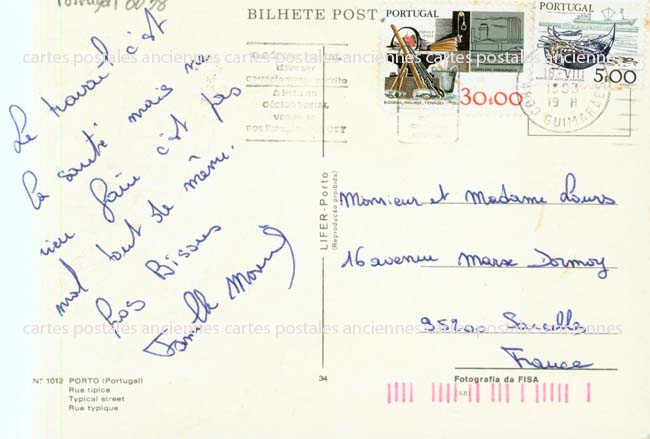 Portugal 0038
BILHETE POST
PORTUGAL
BIGORNA, MALHOS, TENAZES
30$00
PORTUGAL
5$00
18 VIII
1983
19 H
4800 GUIMARÃES
CÓDIGO POSTAL
Le travail c'est
la santé mais ne
rien faire c'est pas
mal tout de même.
Gros Bisous
Famille
LIFER-Porto
(Reprodução proibida)
Monsieur et Madame Lours
16 avenue Marx Dormoy
95200 Sarcelles
France
cartes postales anciennes cartes postales anciennes cartes postales anciennes
cartes postales anciennes cartes postales anciennes cartes postales anciennes
cartes postales anciennes cartes postales anciennes cartes postales anciennes
Nº 1012 PORTO (Portugal)
Rua típica
Typical street
Rue typique
34
Fotografia da FISA